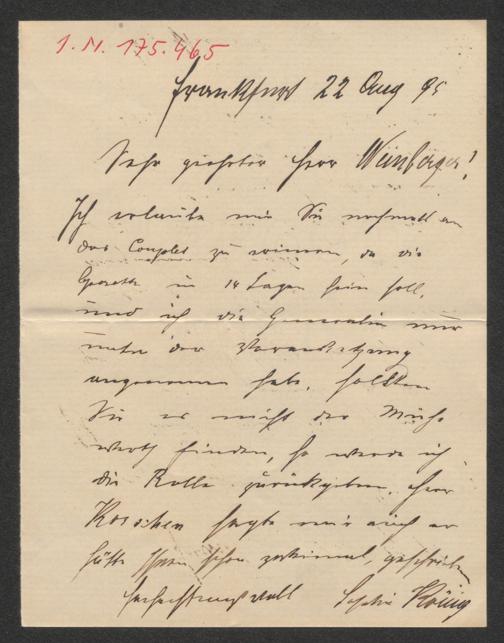 I. N. 175.465
Frankfurt 22 Aug 95
Sehr geehrter Herr Weinberger!
Ich erlaube mir Sie nochmals an
das Couplet zu erinnern, da die
in 14 Tagen sein soll,
und ich die Generalin nur
unter der Voraussetzung
angenommen habe, sollten
Sie es nicht der Mühe
werth finden, so werde ich
die Rolle zurückgeben, Herr
sagte mir auch er
hätte Ihnen schon zweimal geschrieben
Hochachtungsvoll Sophie König